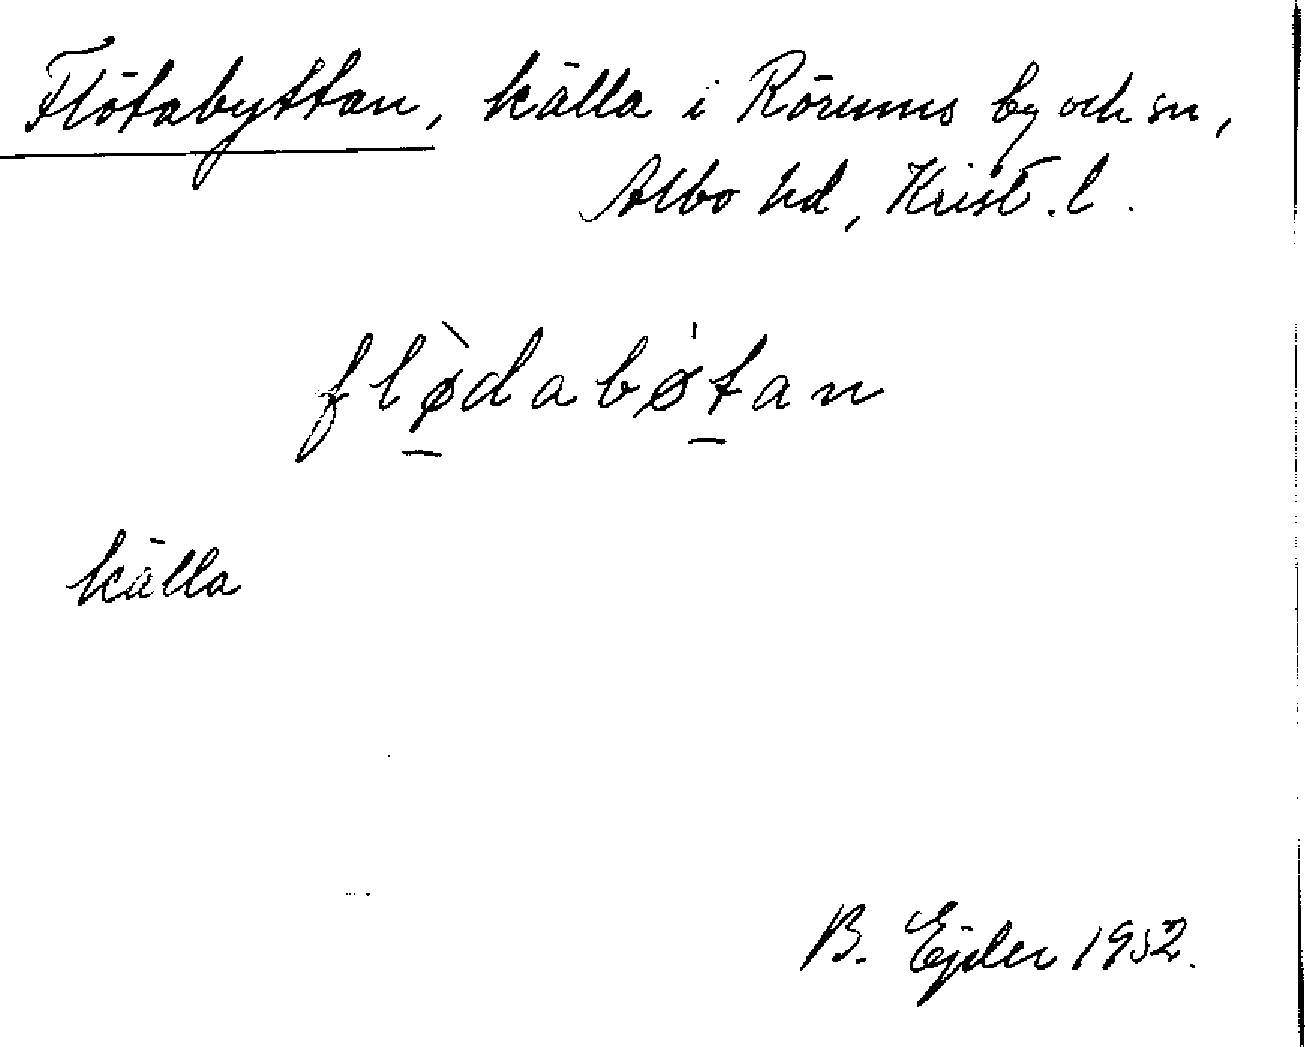 Flötabyttan, källa i Rörums by och sn,
Albo hd, Krist. l.
flø̀dabø̍tan
källa
B. Ejder 1952.